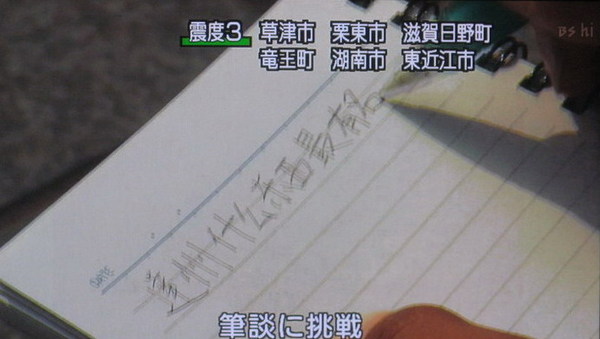 震度3 草津市 栗東市 滋賀日野町
竜王町 湖南市 東近江市
BS hi
州什么酒最有名
DATE
筆談に挑戦